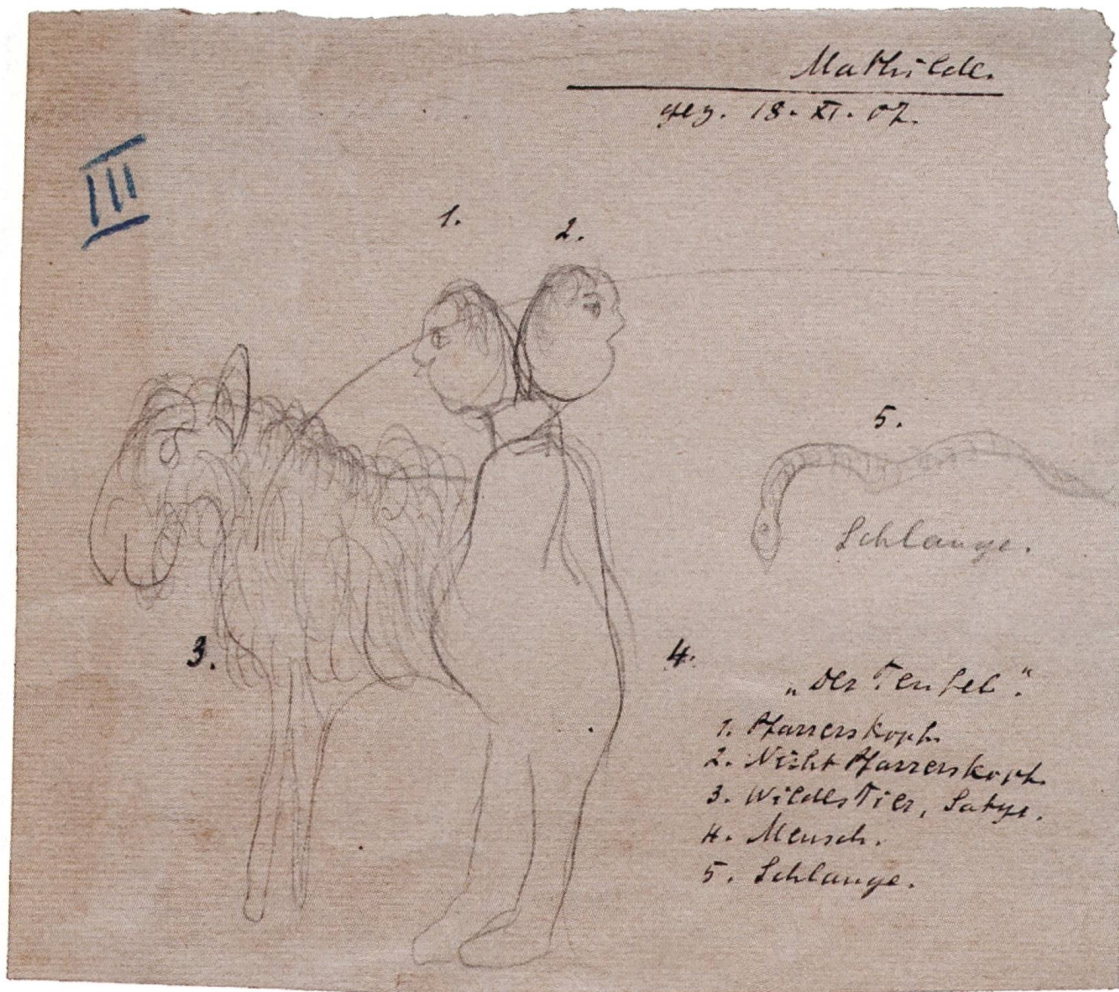 Mathilde.
gez. 18. XI. 07.
III
1.
2.
5.
Schlange.
3.
4.
„Der Teufel“.
1. Pfarrerskopf.
2. Nicht Pfarrerskopf.
3. Wildes Tier, Satyr.
4. Mensch.
5. Schlange.